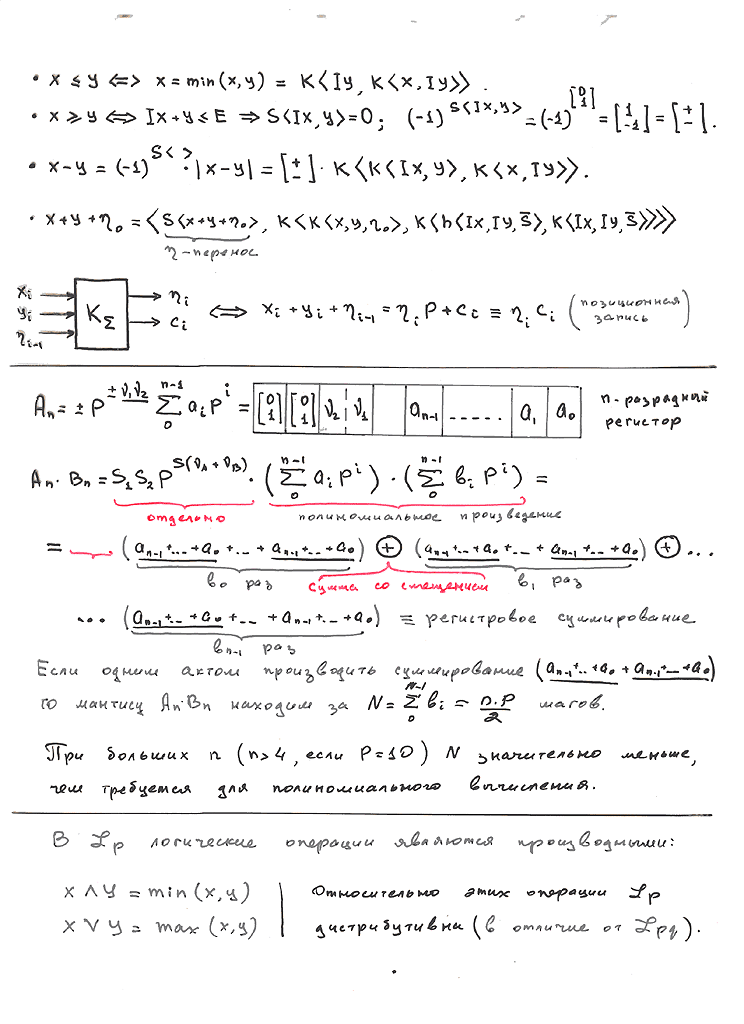 • x ≤ y ⟺ x = min(x,y) = K⟨Iy, K⟨x, Iy⟩⟩.
• x ≥ y ⟺ Ix + y ≤ E ⇒ S⟨Ix, y⟩ = 0; (-1)^{S⟨Ix, y⟩} = (-1)^{[0 1]} = [1 -1] = [+ -].
• x - y = (-1)^{S⟨ ⟩} · |x - y| = [+ -] · K⟨K⟨Ix, y⟩, K⟨x, Iy⟩⟩.
• x + y + η₀ = ⟨S⟨x + y + η₀⟩, K⟨K⟨x, y, η₀⟩, K⟨h⟨Ix, Iy, S̄⟩, K⟨Ix, Iy, S̄⟩⟩⟩⟩
η - перенос
xᵢ yᵢ ηᵢ₋₁ K_Σ ηᵢ cᵢ ⟺ xᵢ + yᵢ + ηᵢ₋₁ = ηᵢ p + cᵢ ≡ ηᵢ cᵢ (позиционная запись)
Aₙ = ± p^{± ν₁ν₂} ∑₀ⁿ⁻¹ aᵢ pⁱ = [0 1] [0 1] ν₂ ν₁ aₙ₋₁ ..... a₁ a₀ n-разрядный регистор
Aₙ · Bₙ = S₁ S₂ p^{S(ν_A + ν_B)} · (∑₀ⁿ⁻¹ aᵢ pⁱ) · (∑₀ⁿ⁻¹ bᵢ pⁱ) =
отдельно полиномиальное произведение
= (aₙ₋₁ +...+ a₀ +...+ aₙ₋₁ +...+ a₀) ⊕ (aₙ₋₁ +...+ a₀ +...+ aₙ₋₁ +...+ a₀) ⊕ ...
b₀ раз сумма со смещением b₁ раз
... (aₙ₋₁ +...+ a₀ +...+ aₙ₋₁ +...+ a₀) ≡ регистровое суммирование
bₙ₋₁ раз
Если одним актом производить суммирование (aₙ₋₁ +..+ a₀ + aₙ₋₁ +...+ a₀)
то мантису Aₙ·Bₙ находим за N = ∑₀ᴺ⁻¹ bᵢ = n·p/2 шагов.
При больших n (n > 4, если p = 10) N значительно меньше,
чем требуется для полиномиального вычисления.
В ℒp логические операции являются производными:
x ∧ y = min(x, y) | Относительно этих операции ℒp
x ∨ y = max(x, y) | дистрибутивна (в отличие от ℒpq).